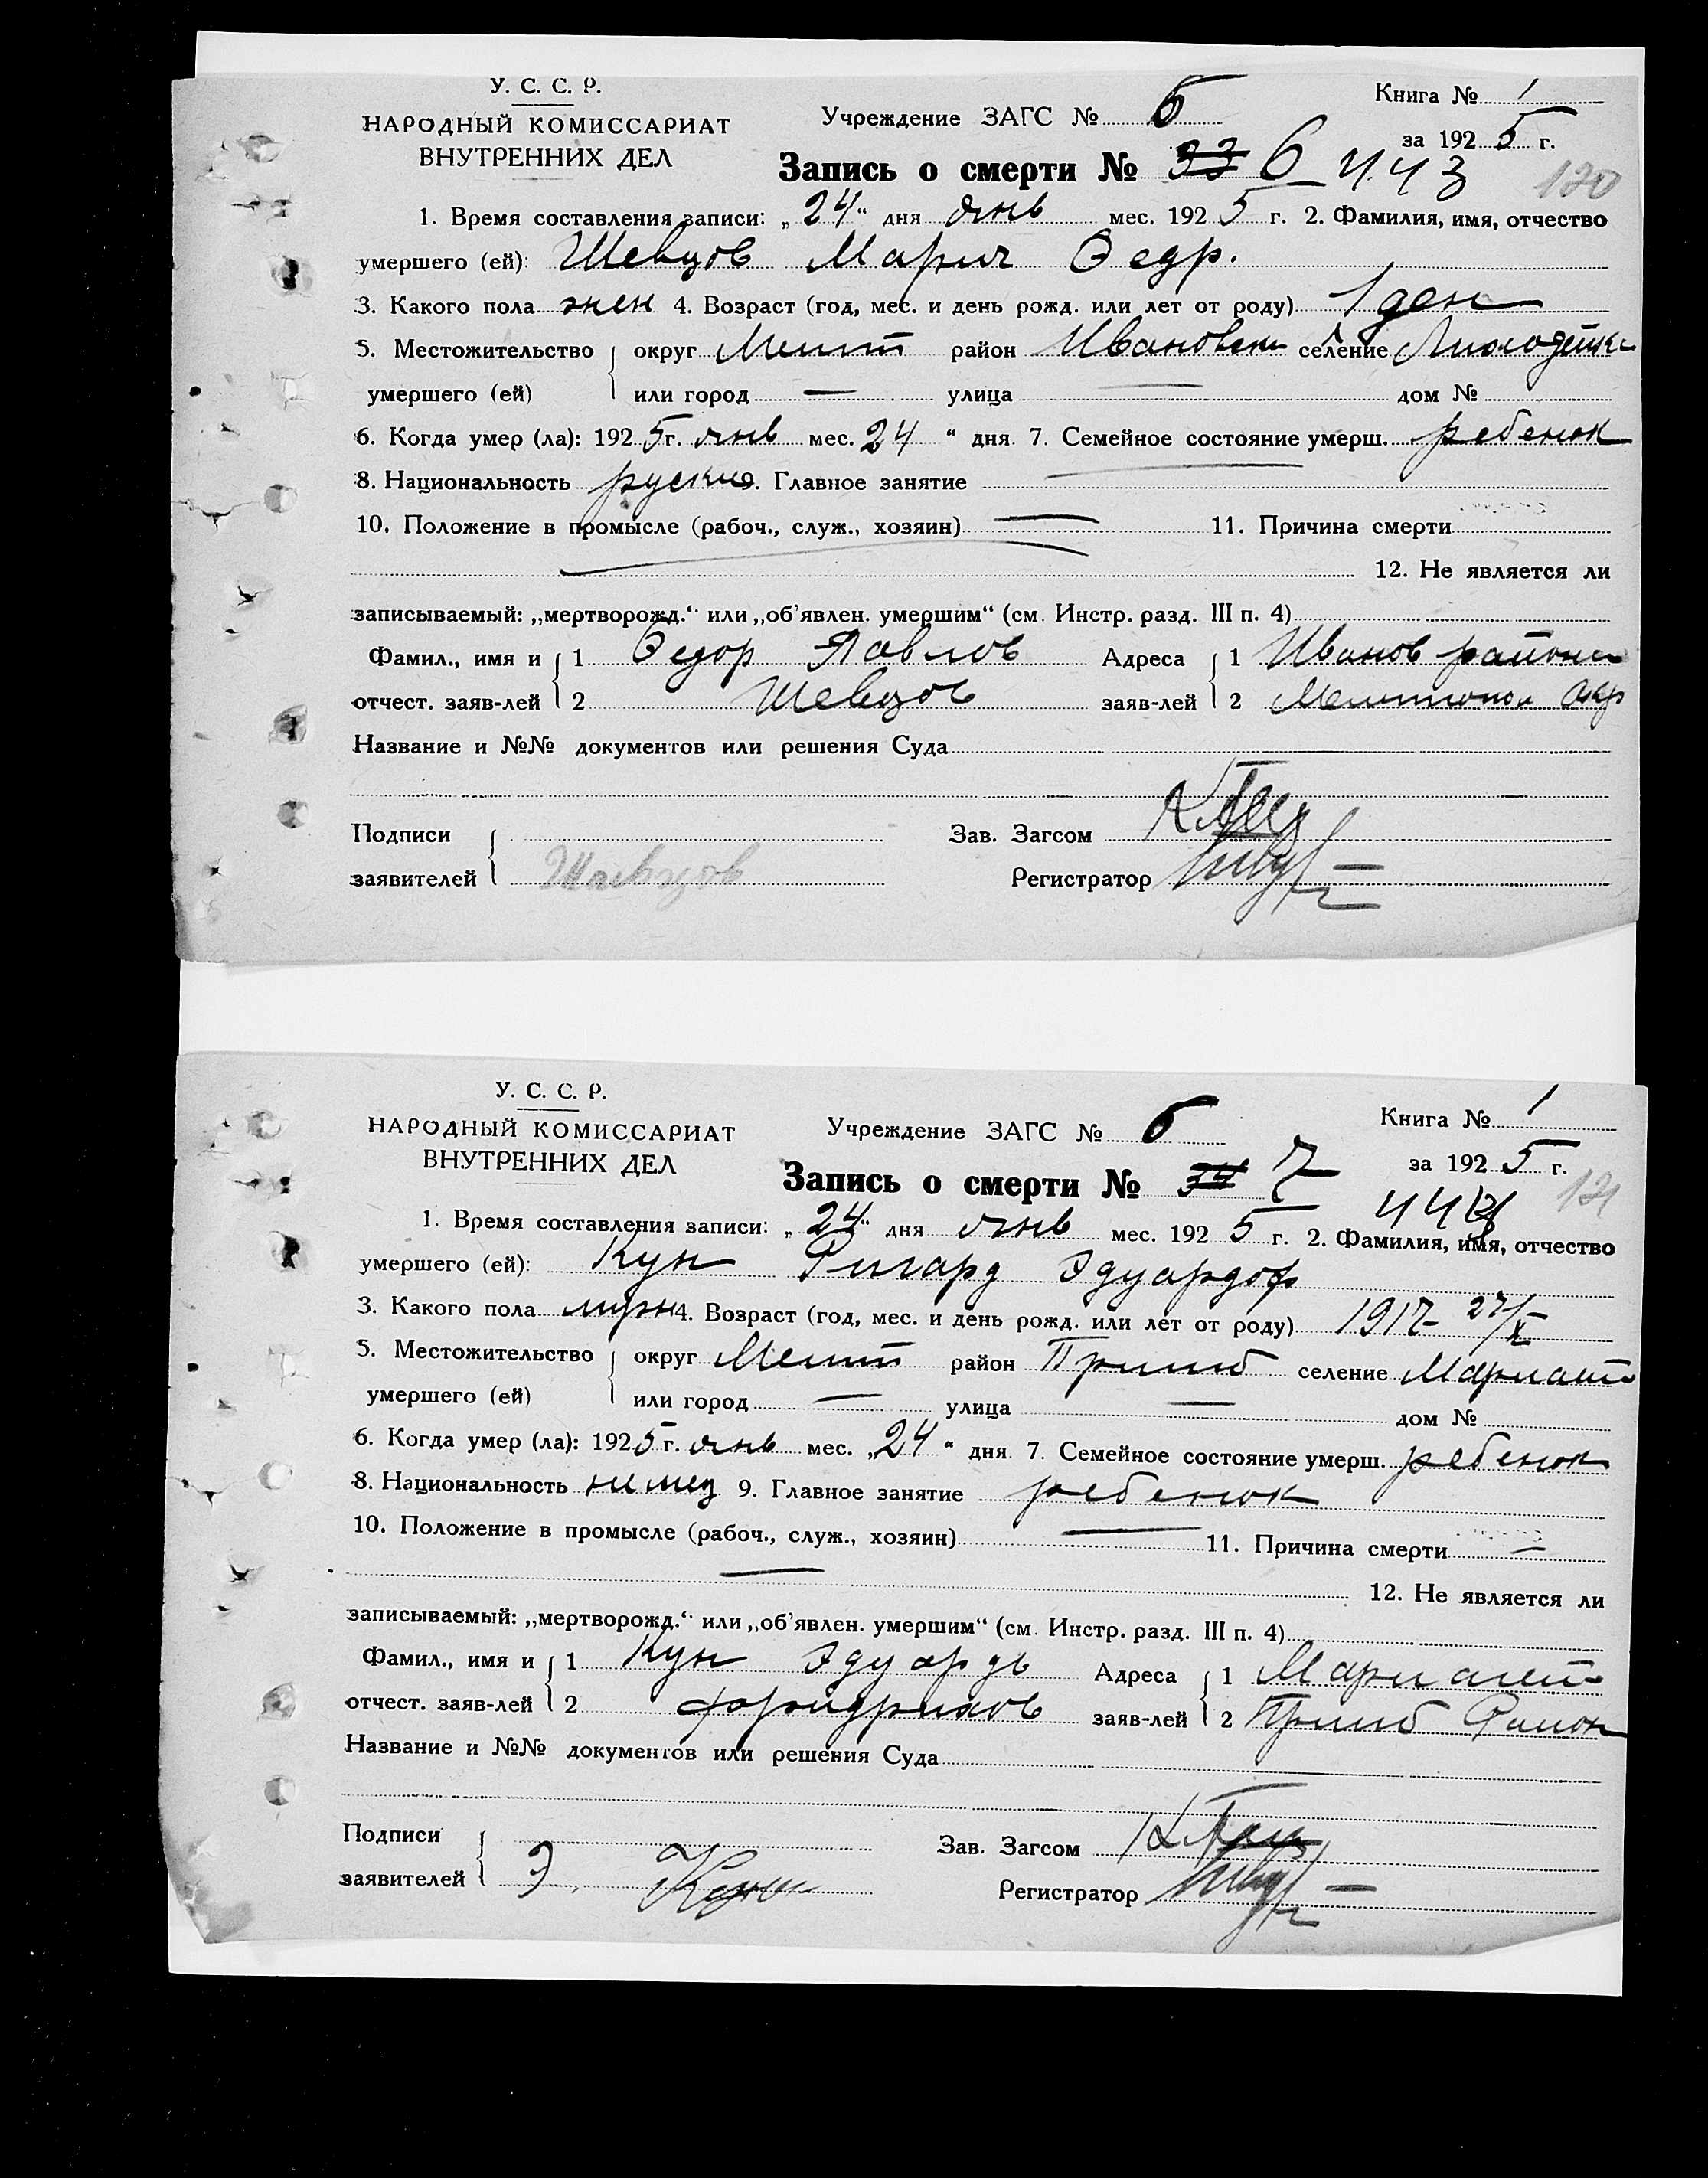 У. С. С. Р.
НАРОДНЫЙ КОМИССАРИАТ
ВНУТРЕННИХ ДЕЛ
Учреждение ЗАГС № 6
Книга № 1
за 1925 г.
Запись о смерти № 33 6 443
120
1. Время составления записи: „24“ дня янв мес. 1925 г. 2. Фамилия, имя, отчество
умершего (ей): Шевцов Мария Федр.
3. Какого пола жен 4. Возраст (год, мес. и день рожд. или лет от роду) 1 ден
5. Местожительство округ Мелит район Ивановск селение
умершего (ей) или город — улица — дом №
6. Когда умер (ла): 1925 г. янв мес. 24 “ дня 7. Семейное состояние умерш. ребенок
8. Национальность руский 9. Главное занятие —
10. Положение в промысле (рабоч., служ., хозяин) — 11. Причина смерти
12. Не является ли
записываемый: „мертворожд.“ или „об'явлен. умершим“ (см. Инстр. разд. III п. 4)
Фамил., имя и 1 Федор Павлов Адреса 1 Иванов района
отчест. заяв-лей 2 Шевцов заяв-лей 2 Мелитопол Окр
Название и №№ документов или решения Суда
Подписи Зав. Загсом
заявителей Шевцов Регистратор
У. С. С. Р.
НАРОДНЫЙ КОМИССАРИАТ
ВНУТРЕННИХ ДЕЛ
Учреждение ЗАГС № 6
Книга № 1
за 1925 г.
Запись о смерти № 34 7
444 121
1. Время составления записи: „24“ дня янв мес. 1925 г. 2. Фамилия, имя, отчество
умершего (ей): Кун Ригард Эдуардоф
3. Какого пола мужс 4. Возраст (год, мес. и день рожд. или лет от роду) 1917 27/X
5. Местожительство округ Мелит район Пришиб селение Мариаит
умершего (ей) или город — улица — дом №
6. Когда умер (ла): 1925 г. янв мес. „24“ дня 7. Семейное состояние умерш. ребенок
8. Национальность немец 9. Главное занятие ребенок
10. Положение в промысле (рабоч., служ., хозяин) — 11. Причина смерти —
— 12. Не является ли
записываемый: „мертворожд.“ или „об'явлен. умершим“ (см. Инстр. разд. III п. 4)
Фамил., имя и 1 Кун Эдуардь Адреса 1
отчест. заяв-лей 2 Фридрихов заяв-лей 2 Пришиб Район
Название и №№ документов или решения Суда
Подписи Зав. Загсом
заявителей Э. Кун Регистратор